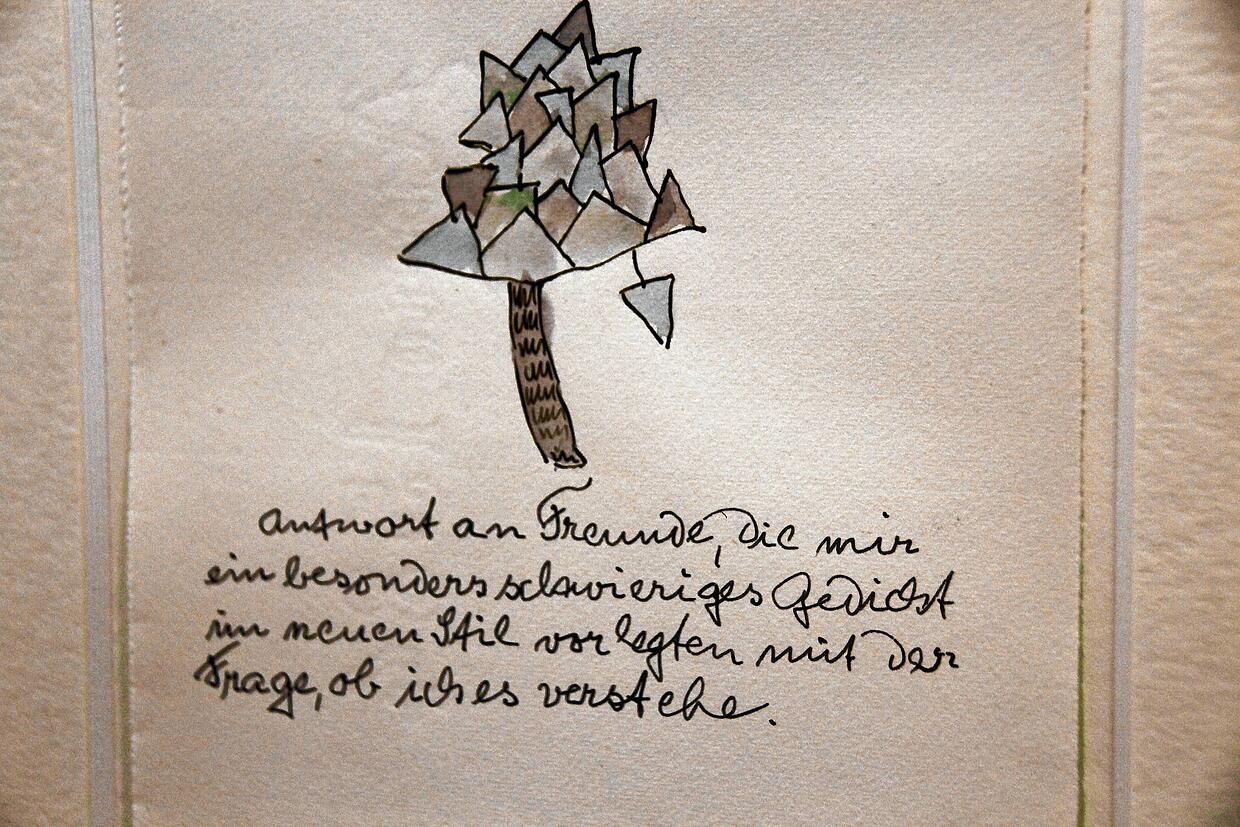 antwort an Freunde, die mir
ein besonders schwieriges Gedicht
im neuen Stil vorlegten mit der
Frage, ob ich es verstehe.